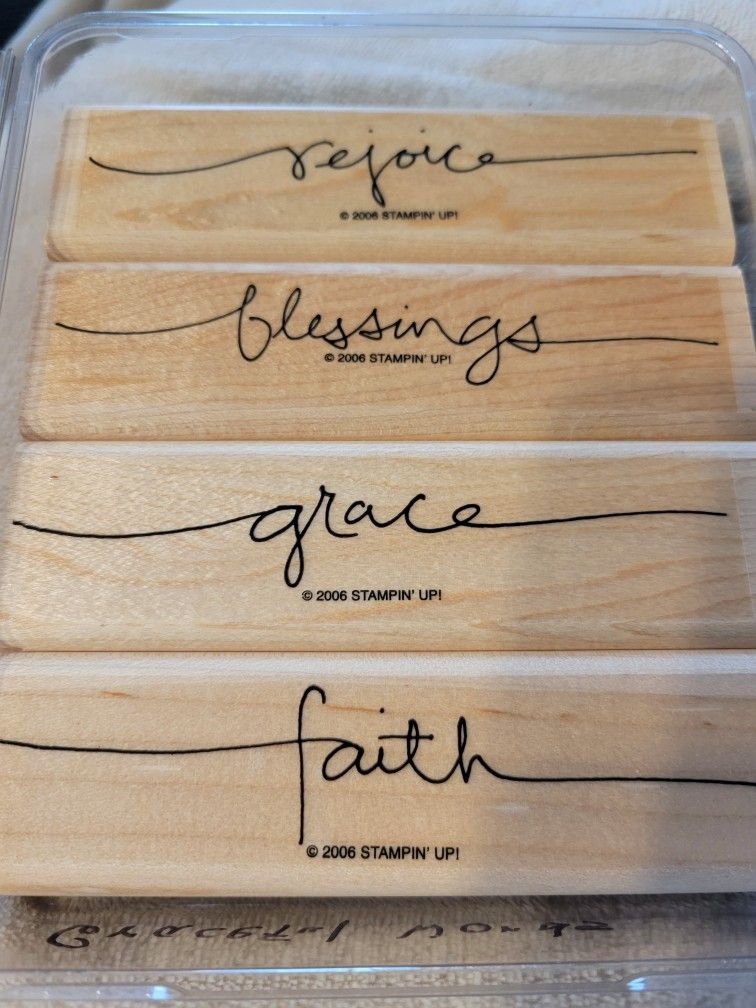 rejoice
© 2006 STAMPIN' UP!
blessings
© 2006 STAMPIN' UP!
grace
© 2006 STAMPIN' UP!
faith
© 2006 STAMPIN' UP!
Graceful Words